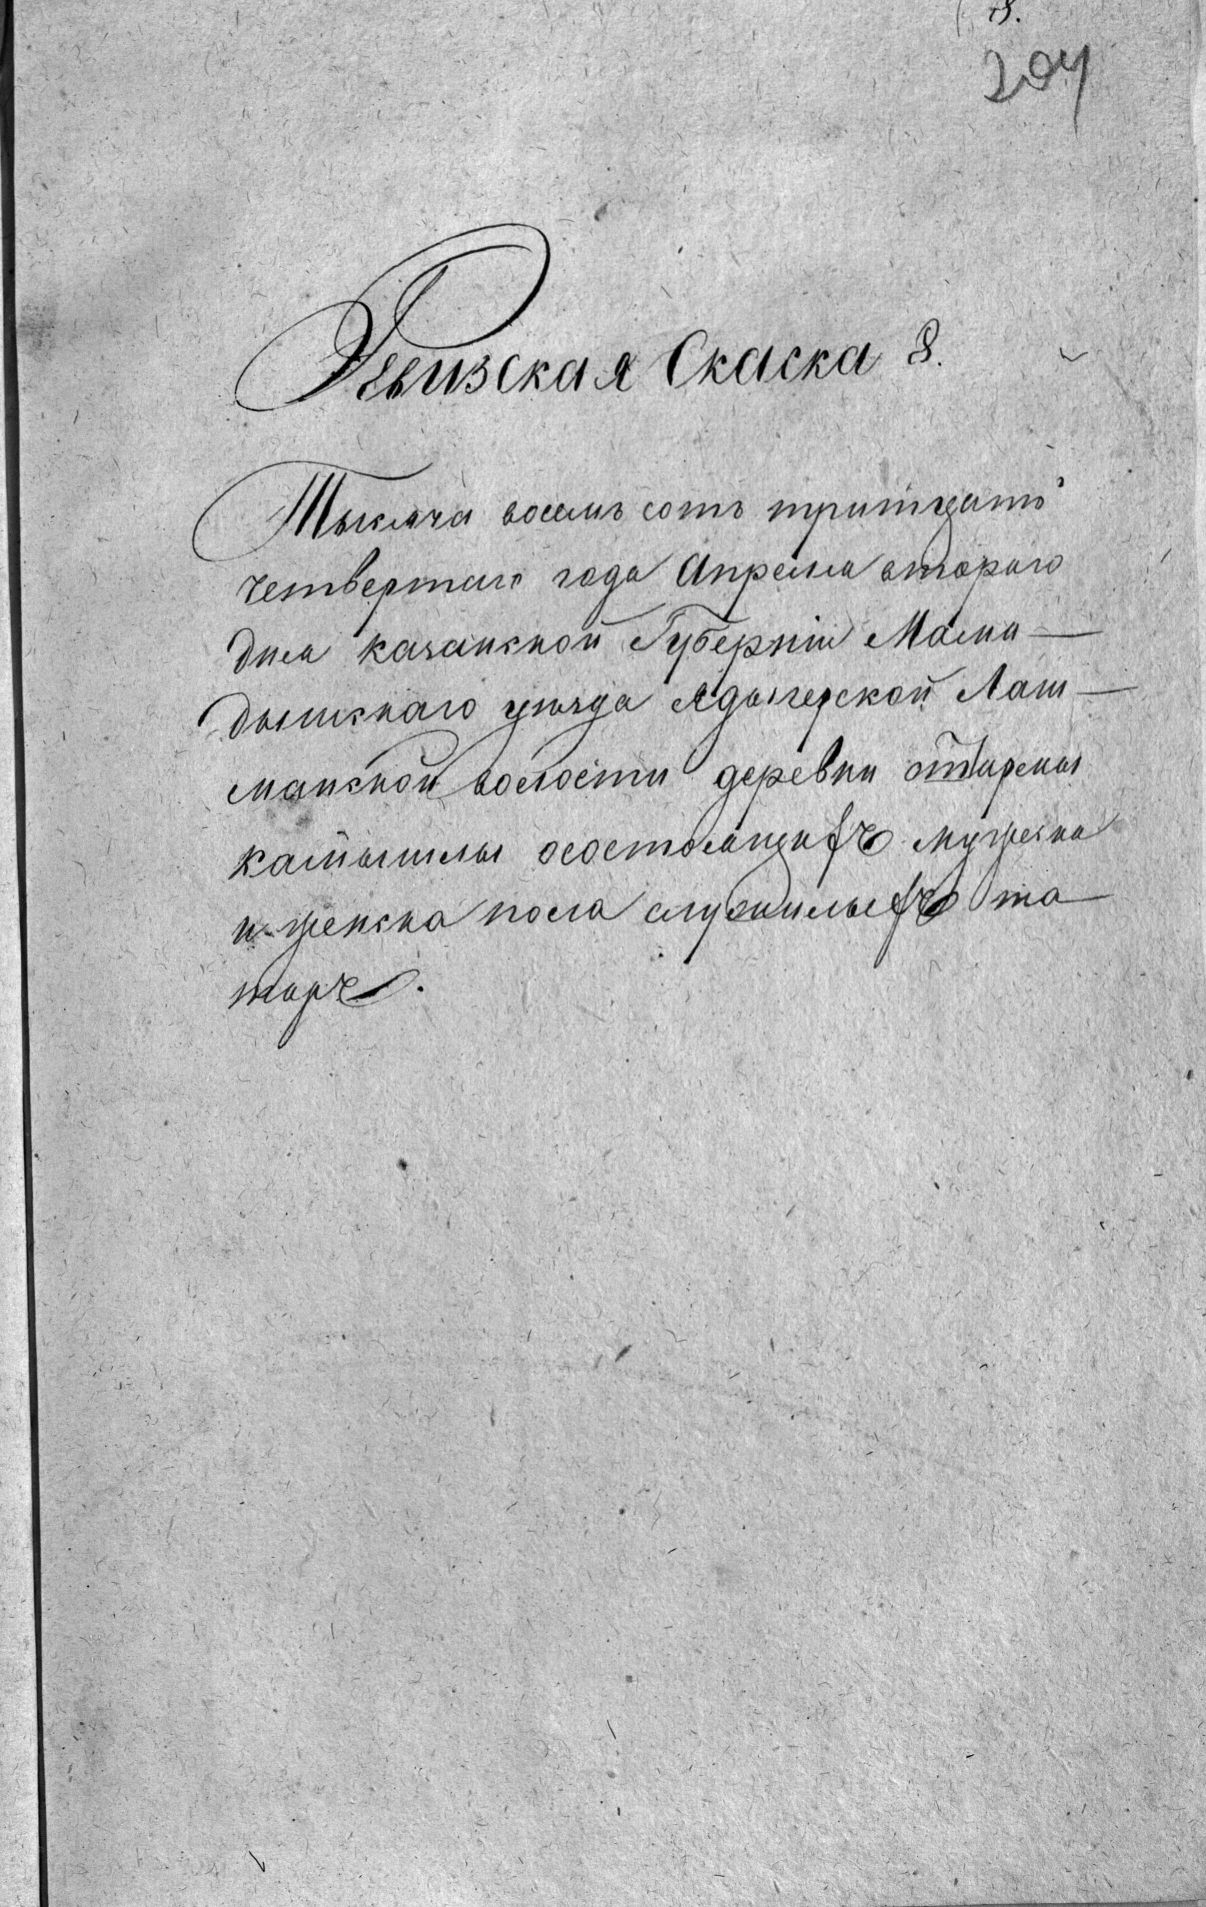 8.
204
Ревизская Скаска 8.
Тысяча восемь сотъ тритцать
четвертаго года Апреля втораго
дня казанской Губерніи Мама
дышскаго уезда Ядыгерской Лаш
манской волости деревни старыя
камышлы осостоящихъ мужеска
и женска пола служилыхъ та
таръ.